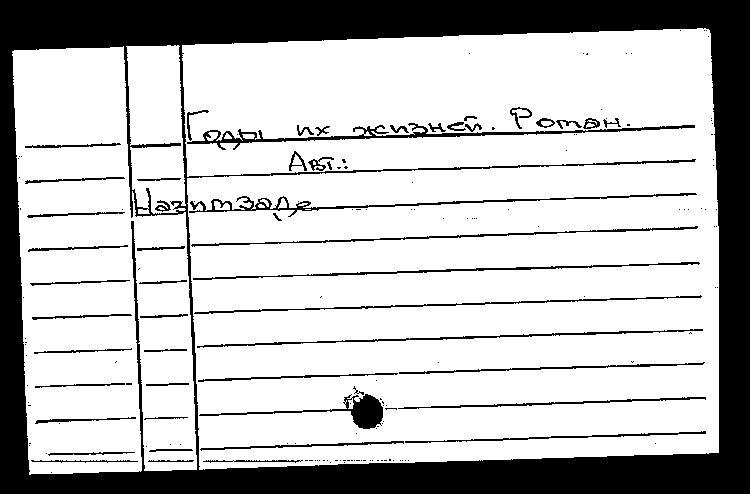 Годы их жизней. Роман.
Авт.:
Назимзаде